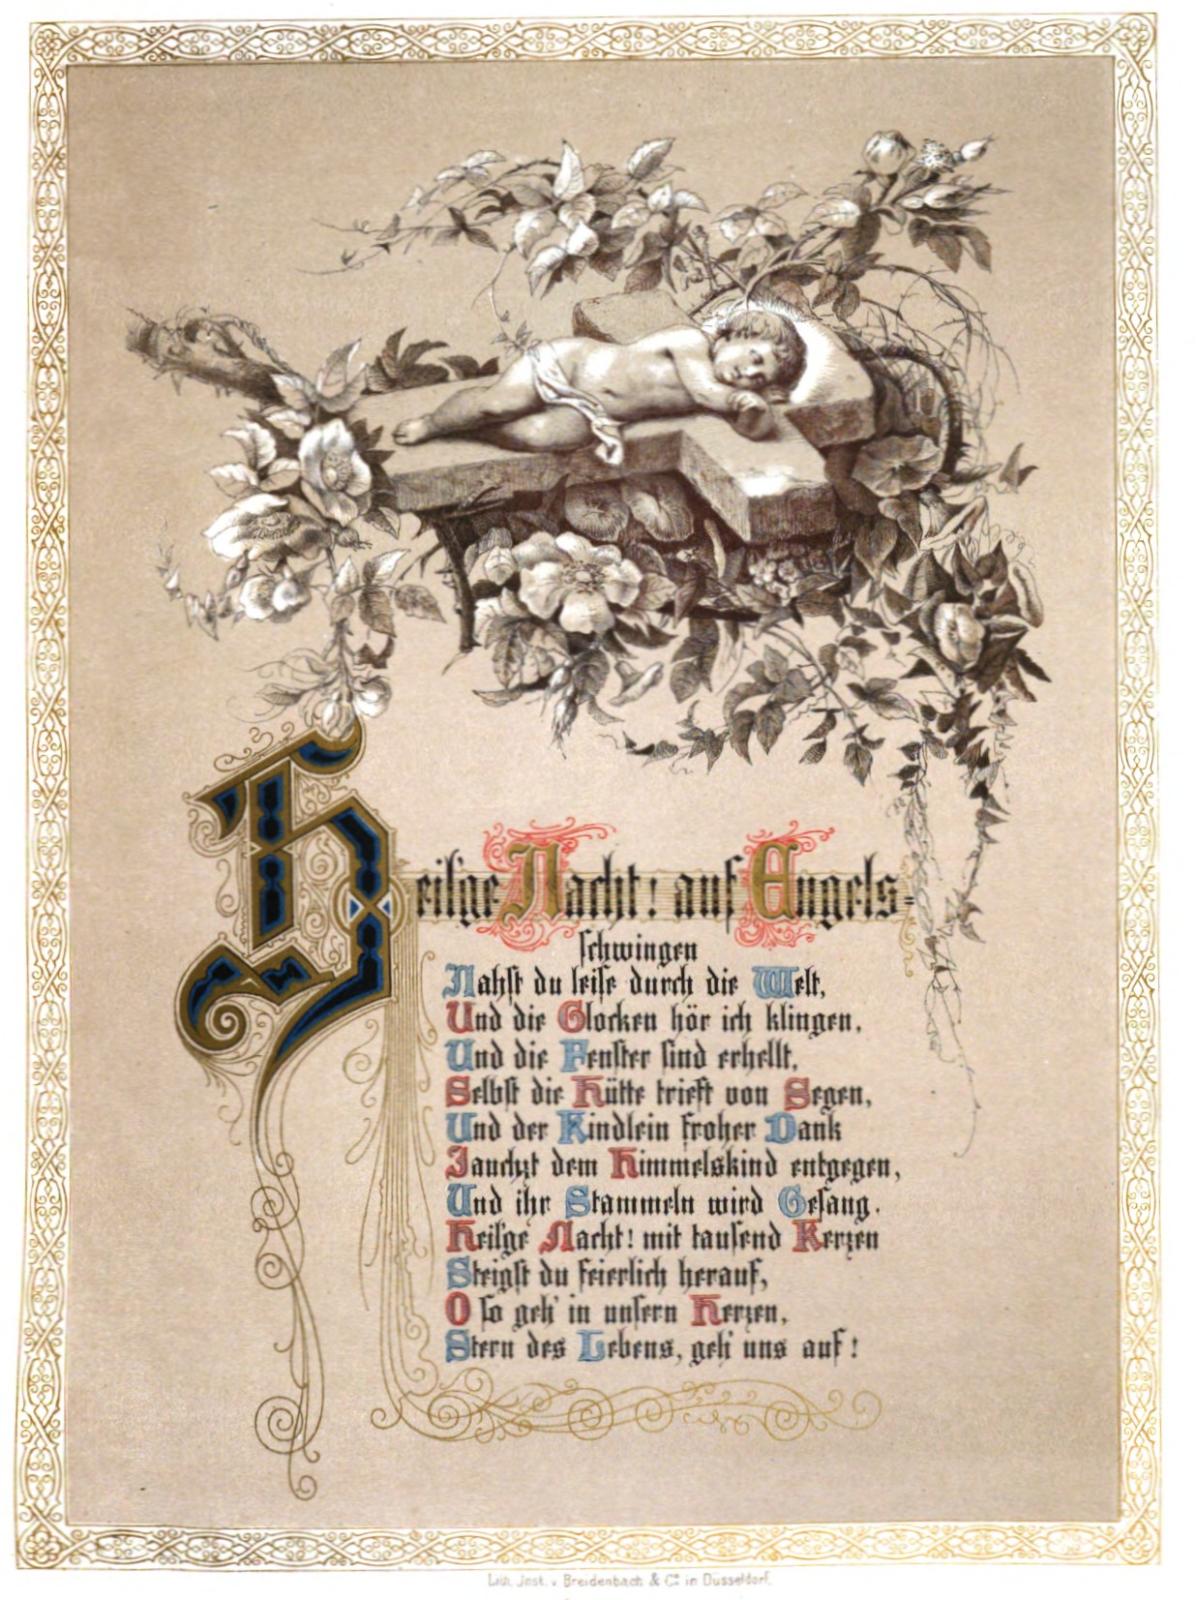 Heil'ge Nacht! auf Engels=
schwingen
Nahst du leise durch die Welt,
Und die Glocken hör ich klingen,
Und die Fenster sind erhellt,
Selbst die Hütte trieft von Segen,
Und der Kindlein froher Dank
Jauchzt dem Himmelskind entgegen,
Und ihr Stammeln wird Gesang.
Heil'ge Nacht! mit tausend Kerzen
Steigst du feierlich herauf,
O so geh' in unsern Herzen,
Stern des Lebens, geh' uns auf!
Lith. Inst. v. Breidenbach & Co. in Düsseldorf.